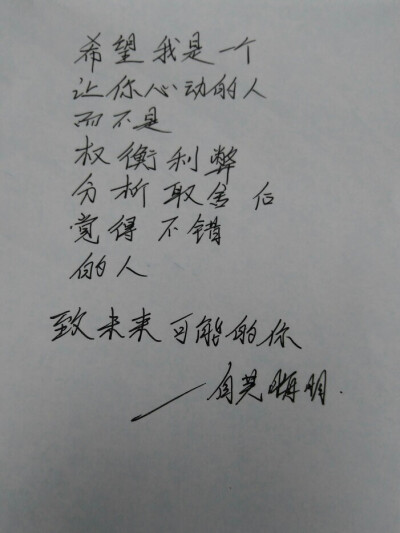 希望我是一个
让你心动的人
而不是
权衡利弊
分析取舍后
觉得不错
的人
致未来可能的你